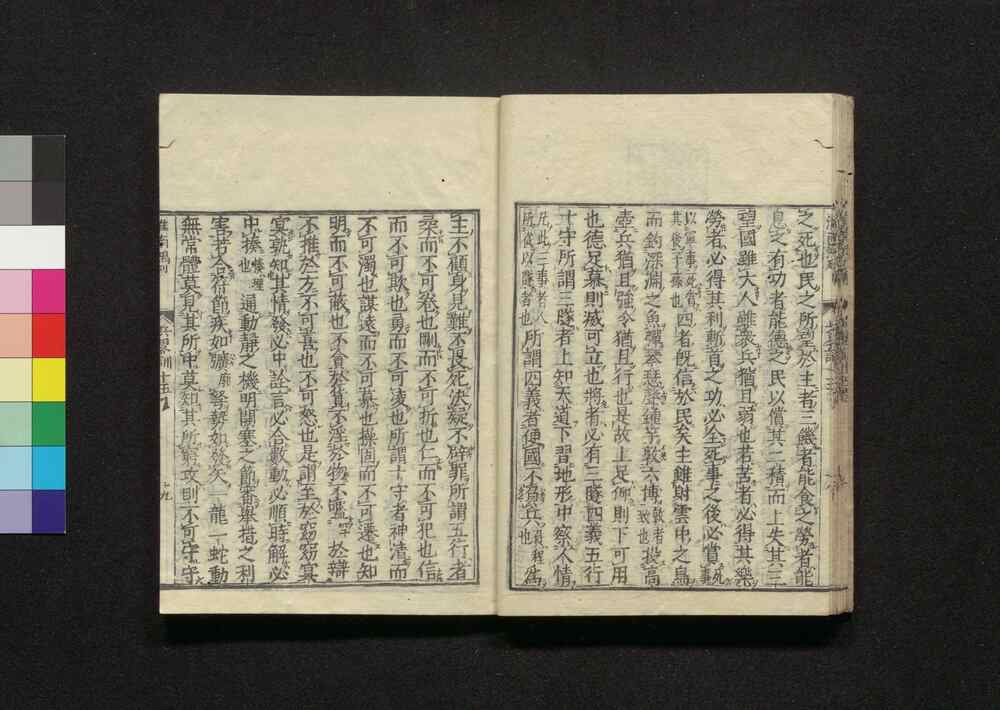 之死也民之所望於主者三饑者能食之勞者能
息之有功者能德之民以償其二積而上失其三
望國雖大人雖衆兵猶且弱也若苦者必得其樂
勞者必得其利斬首之功必全死事之後必賞死事
以軍事死賞其後子孫也四者既信於民矣主雖射雲中之鳥
而釣深淵之魚彈琴瑟聲鐘竽敦六博敦者致也投高
壺兵猶且強令猶且行也是故上足仰則下可用
也德足慕則威可立也將者必有三隧四義五行
十守所謂三隧者上知天道下習地形中察人情
凡此三事者人所從以隧者也所謂四義者便國不負兵負程也爲
主不顧身見難不畏死決疑不辟罪所謂五行者
柔而不可卷也剛而不可折也仁而不可犯也信
而不可欺也勇而不可凌也所謂十守者神清而
不可濁也謀遠而不可慕也操固而不可遷也知
明而不可蔽也不貪於貨不淫於物不嚂於辯
不推於方不可喜也不可怒也是謂至於窈窈冥
冥孰知其情發必中詮言必合數動必順時解必
中揍揍理也通動靜之機明開塞之節審舉措之利
害若合符節疾如彍弩勢如發矢一龍一蛇動
無常體莫見其所中莫知其所窮攻則不可守守